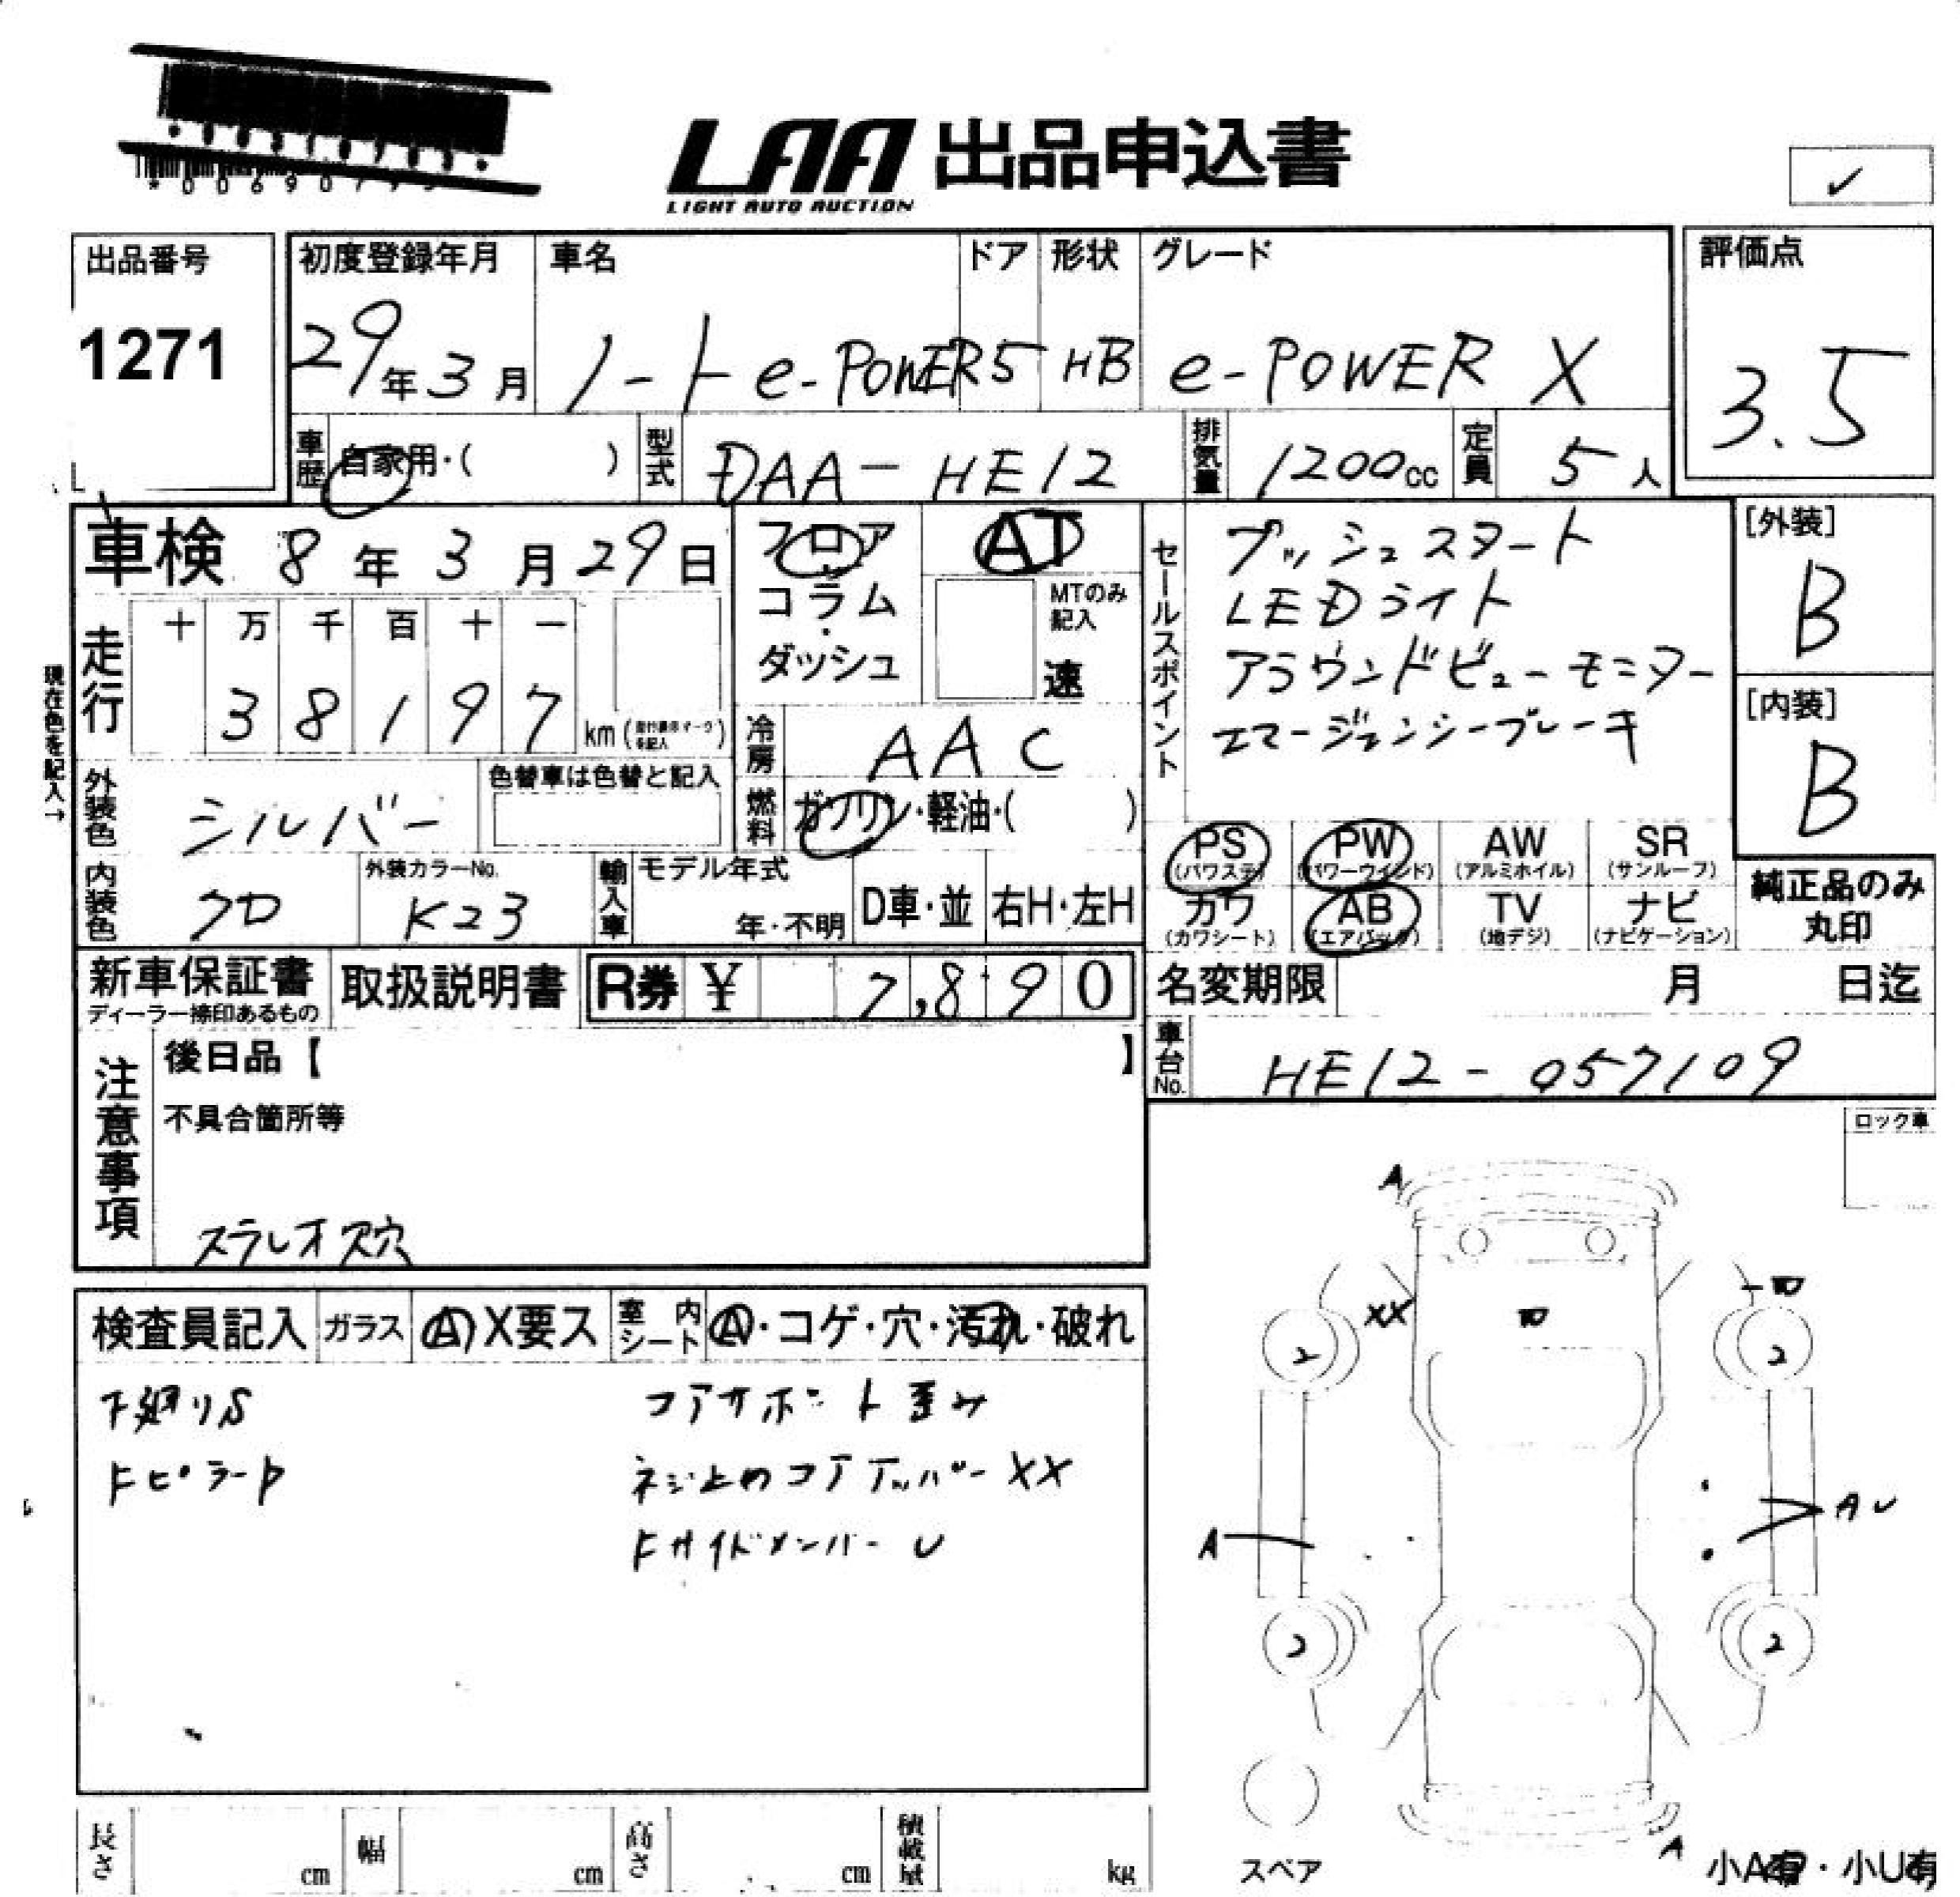 LAA 出品申込書
LIGHT AUTO AUCTION
✓
出品番号
1271
初度登録年月
29年3月
車名
ノート e-POWER
ドア
5
形状
HB
グレード
e-POWER X
評価点
3.5
車歴 自家用・( )
型式 DAA-HE12
排気量 1200cc
定員 5人
車検 8年3月29日
フロア
コラム
・
ダッシュ
AT
MTのみ記入
速
セールスポイント
プッシュスタート
LEDライト
アラウンドビューモニター
エマージェンシーブレーキ
[外装]
B
[内装]
B
現在色を記入→
走行
十 万 千 百 十 一
3 8 1 9 7 km
冷房 AAC
燃料 ガソリン・軽油・( )
外装色 シルバー
色替車は色替と記入
内装色 クロ
外装カラーNo.
K23
輸入車
モデル年式
年・不明
D車・並
右H・左H
PS (パワステ)
PW (パワーウインド)
AW (アルミホイル)
SR (サンルーフ)
カワ (カワシート)
AB (エアバッグ)
TV (地デジ)
ナビ (ナビゲーション)
純正品のみ丸印
新車保証書
ディーラー捺印あるもの
取扱説明書
R券 ¥ 7,890
名変期限 月 日迄
車台No. HE12-057109
注意事項
後日品【 】
不具合箇所等
ステレオ穴
ロック車
検査員記入
ガラス
A X要ス
室内シート
A・コゲ・穴・汚れ・破れ
下廻りS
コアサポート歪み
ネジ止めコアアッパーXX
FサイドメンバーU
A
XX
2
2
A
AU
2
2
A
スペア
小A有・小U有
長さ cm
幅 cm
高さ cm
積載量 kg